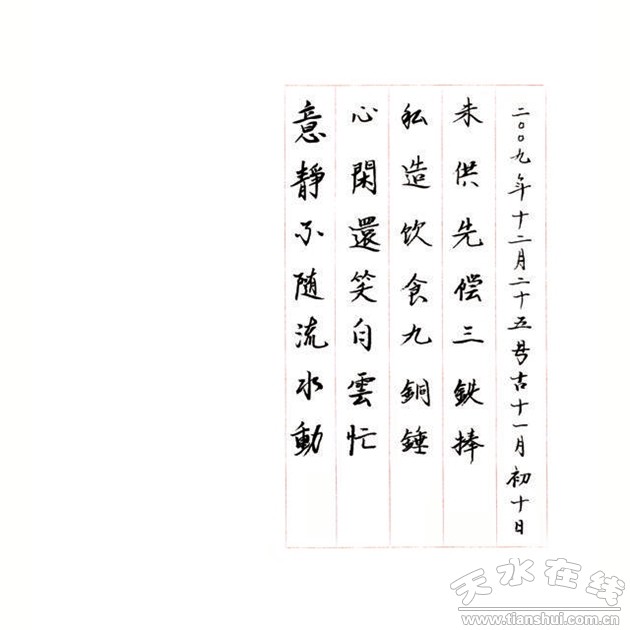 二〇〇九年十二月二十五号古十一月初十日
未供先偿三鉄捧
私造饮食九銅錘
心閑還笑白雲忙
意靜不随流水動
天水在线
www.tianshui.com.cn